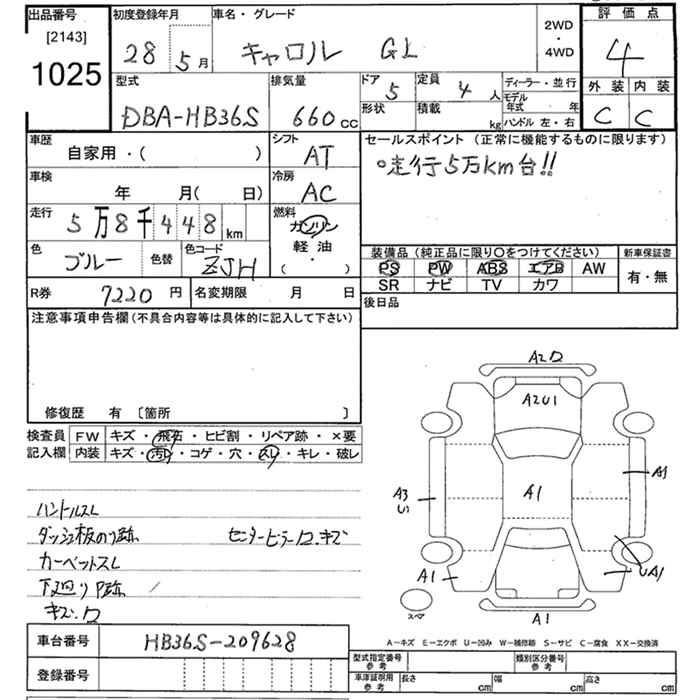 出品番号 初度登録年月 車名・グレード 2WD・4WD 評価点
[2143]
1025
28 5月 キャロル GL 4
型式 排気量 ドア 5 定員 4人 ディーラー・並行 外装 内装
DBA-HB36S 660cc 形状 積載 kg モデル年式 年 C C
ハンドル 左・右
車歴 シフト セールスポイント (正常に機能するものに限ります)
自家用・( ) AT ○走行5万km台!!
車検 年 月( 日) 冷房 AC
走行 5万8千448km 燃料 ガソリン
軽油
・
( )
色 ブルー 色替 色コード ZJH
装備品 (純正品に限り○をつけてください) 新車保証書
PS PW ABS エアB AW 有・無
SR ナビ TV カワ
R券 7220円 名変期限 月 日 後日品
注意事項申告欄(不具合内容等は具体的に記入して下さい)
修復歴 有 〔箇所 〕
検査員 FW キズ・飛石・ヒビ割・リペア跡・×要
記入欄 内装 キズ・汚レ・コゲ・穴・スレ・キレ・破レ
ハンドルスレ
ダッシュ板のり跡 センターピラーロ.キズ
カーペットスレ
下廻りP跡
キズ.ロ
A2
A2U1
A1
A3
A1
A1
UA1
A1
スペア
A-キズ E-エクボ U-凹み W-補修跡 S-サビ C-腐食 XX-交換済
車台番号 HB36S-209628
登録番号
型式指定番号 参考 類別区分番号 参考
車庫証明用 参考 長さ cm 幅 cm 高さ cm